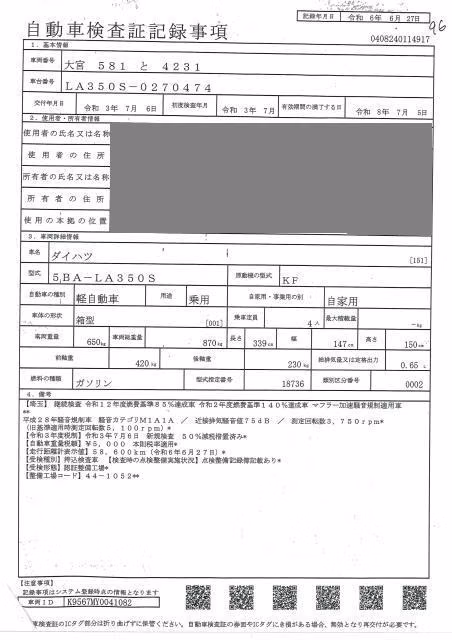 記録年月日 令和 6年 6月 27日
96
自動車検査証記録事項
0408240114917
1．基本情報
車両番号 大宮 581 と 4231
車台番号 LA350S-0270474
交付年月日 令和 3年 7月 6日 初度検査年月 令和 3年 7月 有効期間の満了する日 令和 8年 7月 5日
2．使用者・所有者情報
使用者の氏名又は名称
使用者の住所
所有者の氏名又は名称
所有者の住所
使用の本拠の位置
3．車両詳細情報
車名 ダイハツ [151]
型式 5BA-LA350S 原動機の型式 KF
自動車の種別 軽自動車 用途 乗用 自家用・事業用の別 自家用
車体の形状 箱型 [001] 乗車定員 4人 最大積載量 -kg
車両重量 650kg 車両総重量 870kg 長さ 339cm 幅 147cm 高さ 150cm
前軸重 420kg 後軸重 230kg 総排気量又は定格出力 0.65 L
燃料の種類 ガソリン 型式指定番号 18736 類別区分番号 0002
4．備考
[埼玉] 継続検査 令和12年度燃費基準85%達成車 令和2年度燃費基準140%達成車 マフラー加速騒音規制適用車
**
平成28年騒音規制車 騒音カテゴリM1A1A ／ 近接排気騒音値75dB ／ 測定回転数3,750rpm*
(旧基準適用時測定回転数5,100rpm)*
[令和3年度税制] 令和3年7月6日 新規検査 50%減税措置済み*
[自動車重量税額] ¥5,000 本則税率適用*
[走行距離計表示値] 58,600km (令和6年6月27日)*
[受検種別] 持込検査車 [検査時の点検整備実施状況] 点検整備記録簿記載あり*
[受検形態] 認証整備工場*
[整備工場コード] 44-1052**
【注意事項】
記録事項はシステム登録時点の情報となります
車両ID K9567MY0041082
車検査証のICタグ部分は折り曲げずに保管ください。自動車検査証の券面やICタグにき損がある場合、無効となり再交付が必要です。